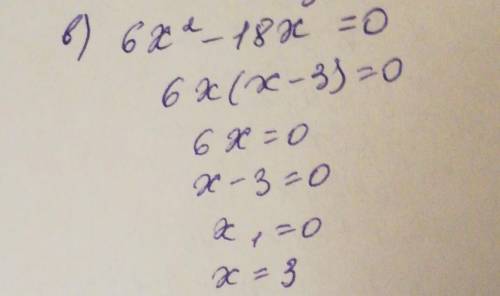 в) 6x² - 18x = 0
6x(x - 3) = 0
6x = 0
x - 3 = 0
x₁ = 0
x = 3